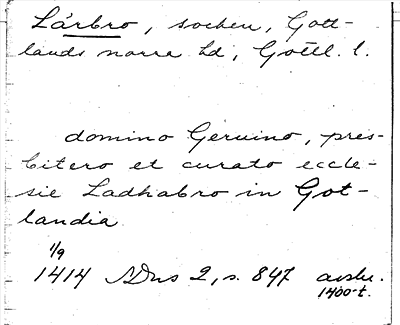 Lärbro, socken, Gott-
lands norra hd, Gottl. l.
domino Geruino, pres-
bitero et curato eccle-
sie Ladhabro in Got-
landia
1/9
1414 SDns 2, s. 847 avskr.
1400-t.